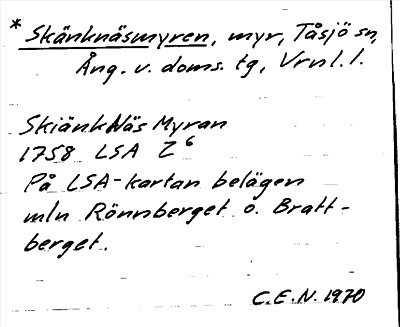 * Skänknäsmyren, myr, Tåsjö sn,
Ång. v. doms. tg, Vrnl. l.
SkiänkNäs Myran
1758 LSA Z⁶
På LSA-kartan belägen
mln Rönnberget o. Bratt-
berget.
C.E.N. 1970